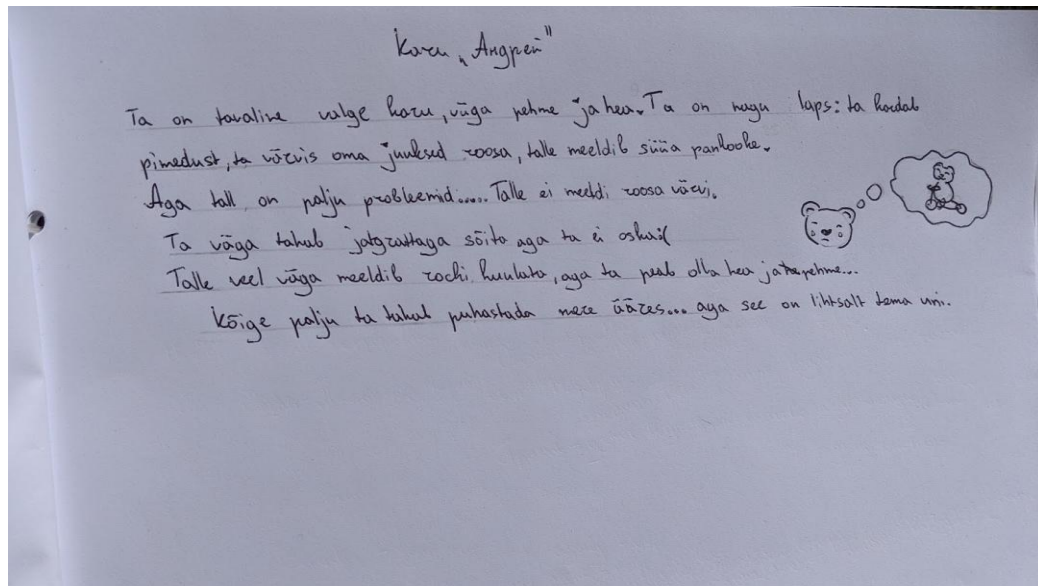 Karu „Андрей"
Ta on tavaline valge karu, väga pehme ja hea. Ta on nagu laps: ta kardab
pimedust, ta värvis oma juuksed roosa, talle meeldib süüa pankooke.
Aga tall on palju probleemid..... Talle ei meeldi roosa värvi.
Ta väga tahab jatgrattaga sõita aga ta ei oska:(
Talle veel väga meeldib rocki kuulata, aga ta peab olla hea ja pehme...
Kõige palju ta tahab puhastada mere ääres... aga see on lihtsalt tema uni.